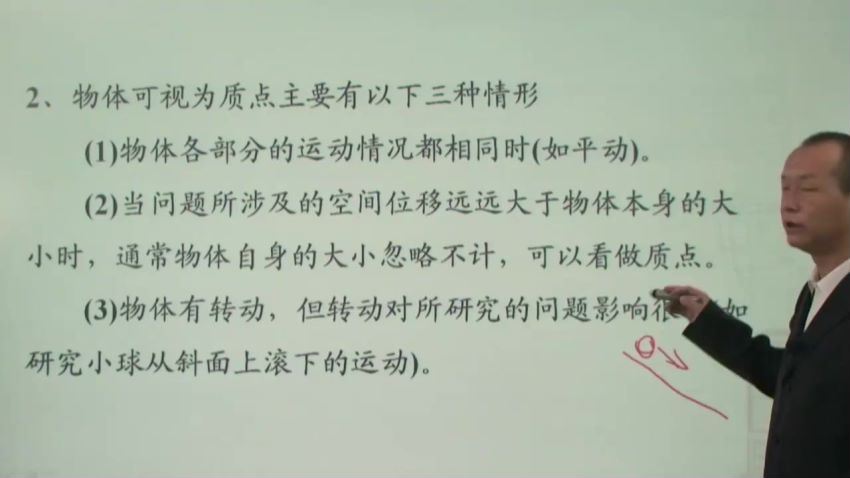 2、物体可视为质点主要有以下三种情形
(1)物体各部分的运动情况都相同时(如平动)。
(2)当问题所涉及的空间位移远远大于物体本身的大
小时，通常物体自身的大小忽略不计，可以看做质点。
(3)物体有转动，但转动对所研究的问题影响很 如
研究小球从斜面上滚下的运动)。